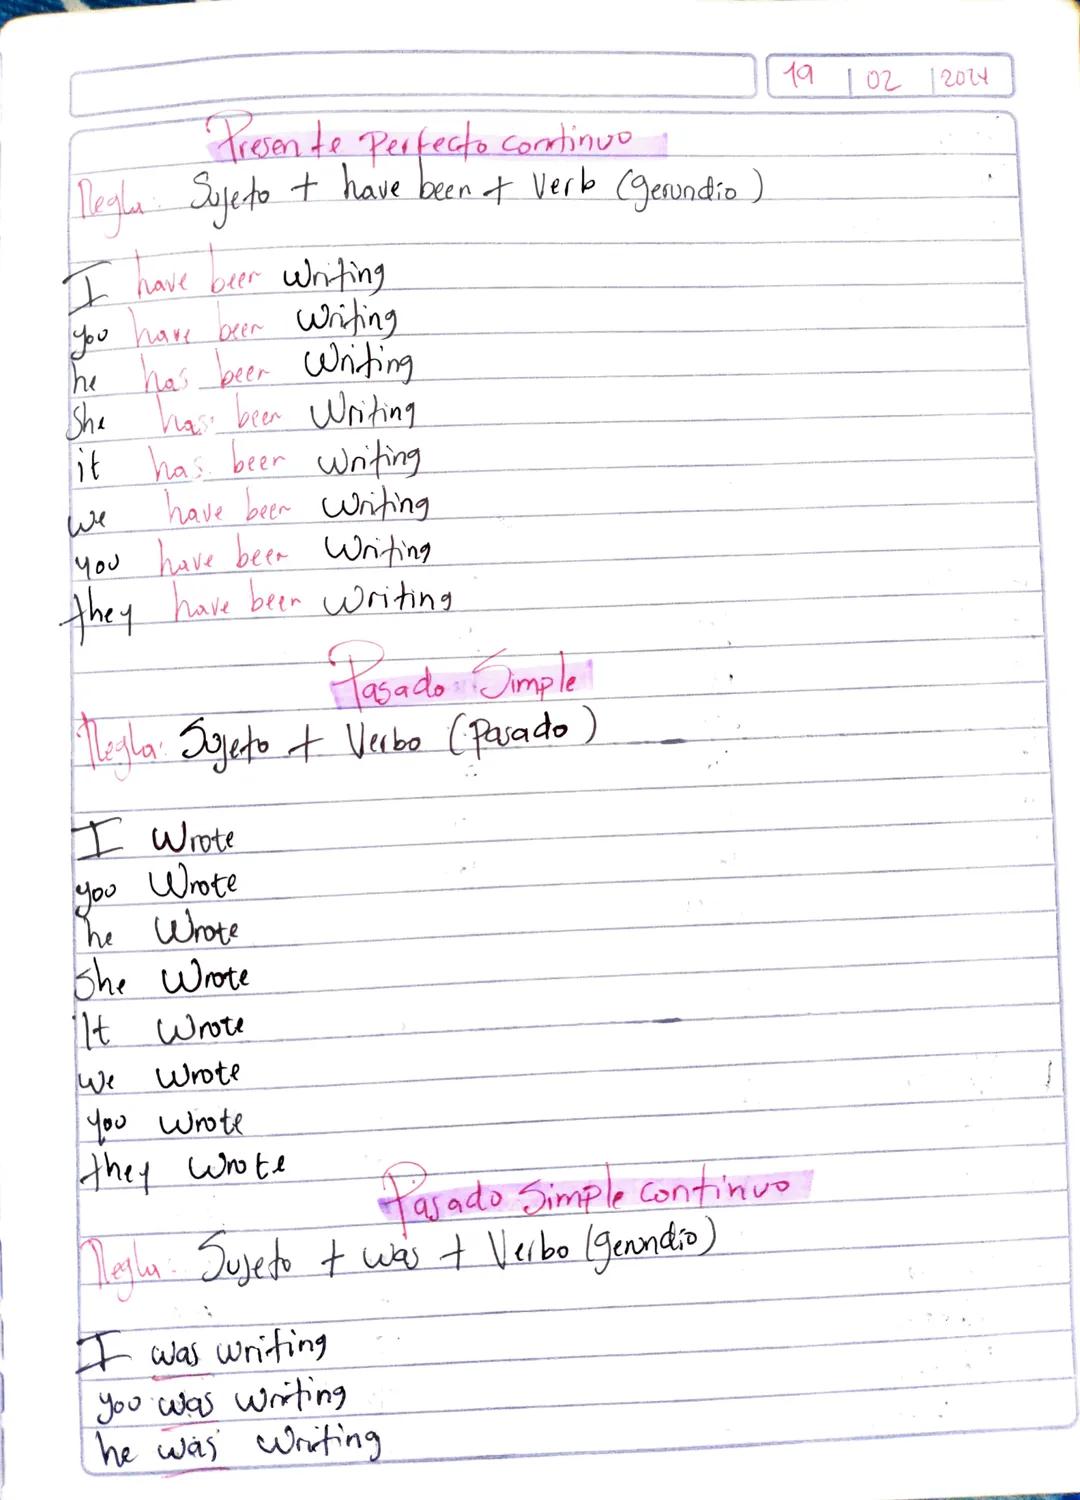 19 | 02 | 2024
Presente Perfecto continuo
Regla: Sujeto + have been + Verb (gerundio)
I have been writing
you have been writing
he has been Writing
She has been Writing
it has been writing
we have been writing
you have been writing
they have been writing
Pasado Simple
Regla: Sujeto + Verbo (Pasado)
I Wrote
you Wrote
he Wrote
She Wrote
It Wrote
we wrote
you wrote
they wrote
Pasado Simple continuo
Regla: Sujeto + was + Verbo (gerundio)
I was writing
you was writing
he was writing